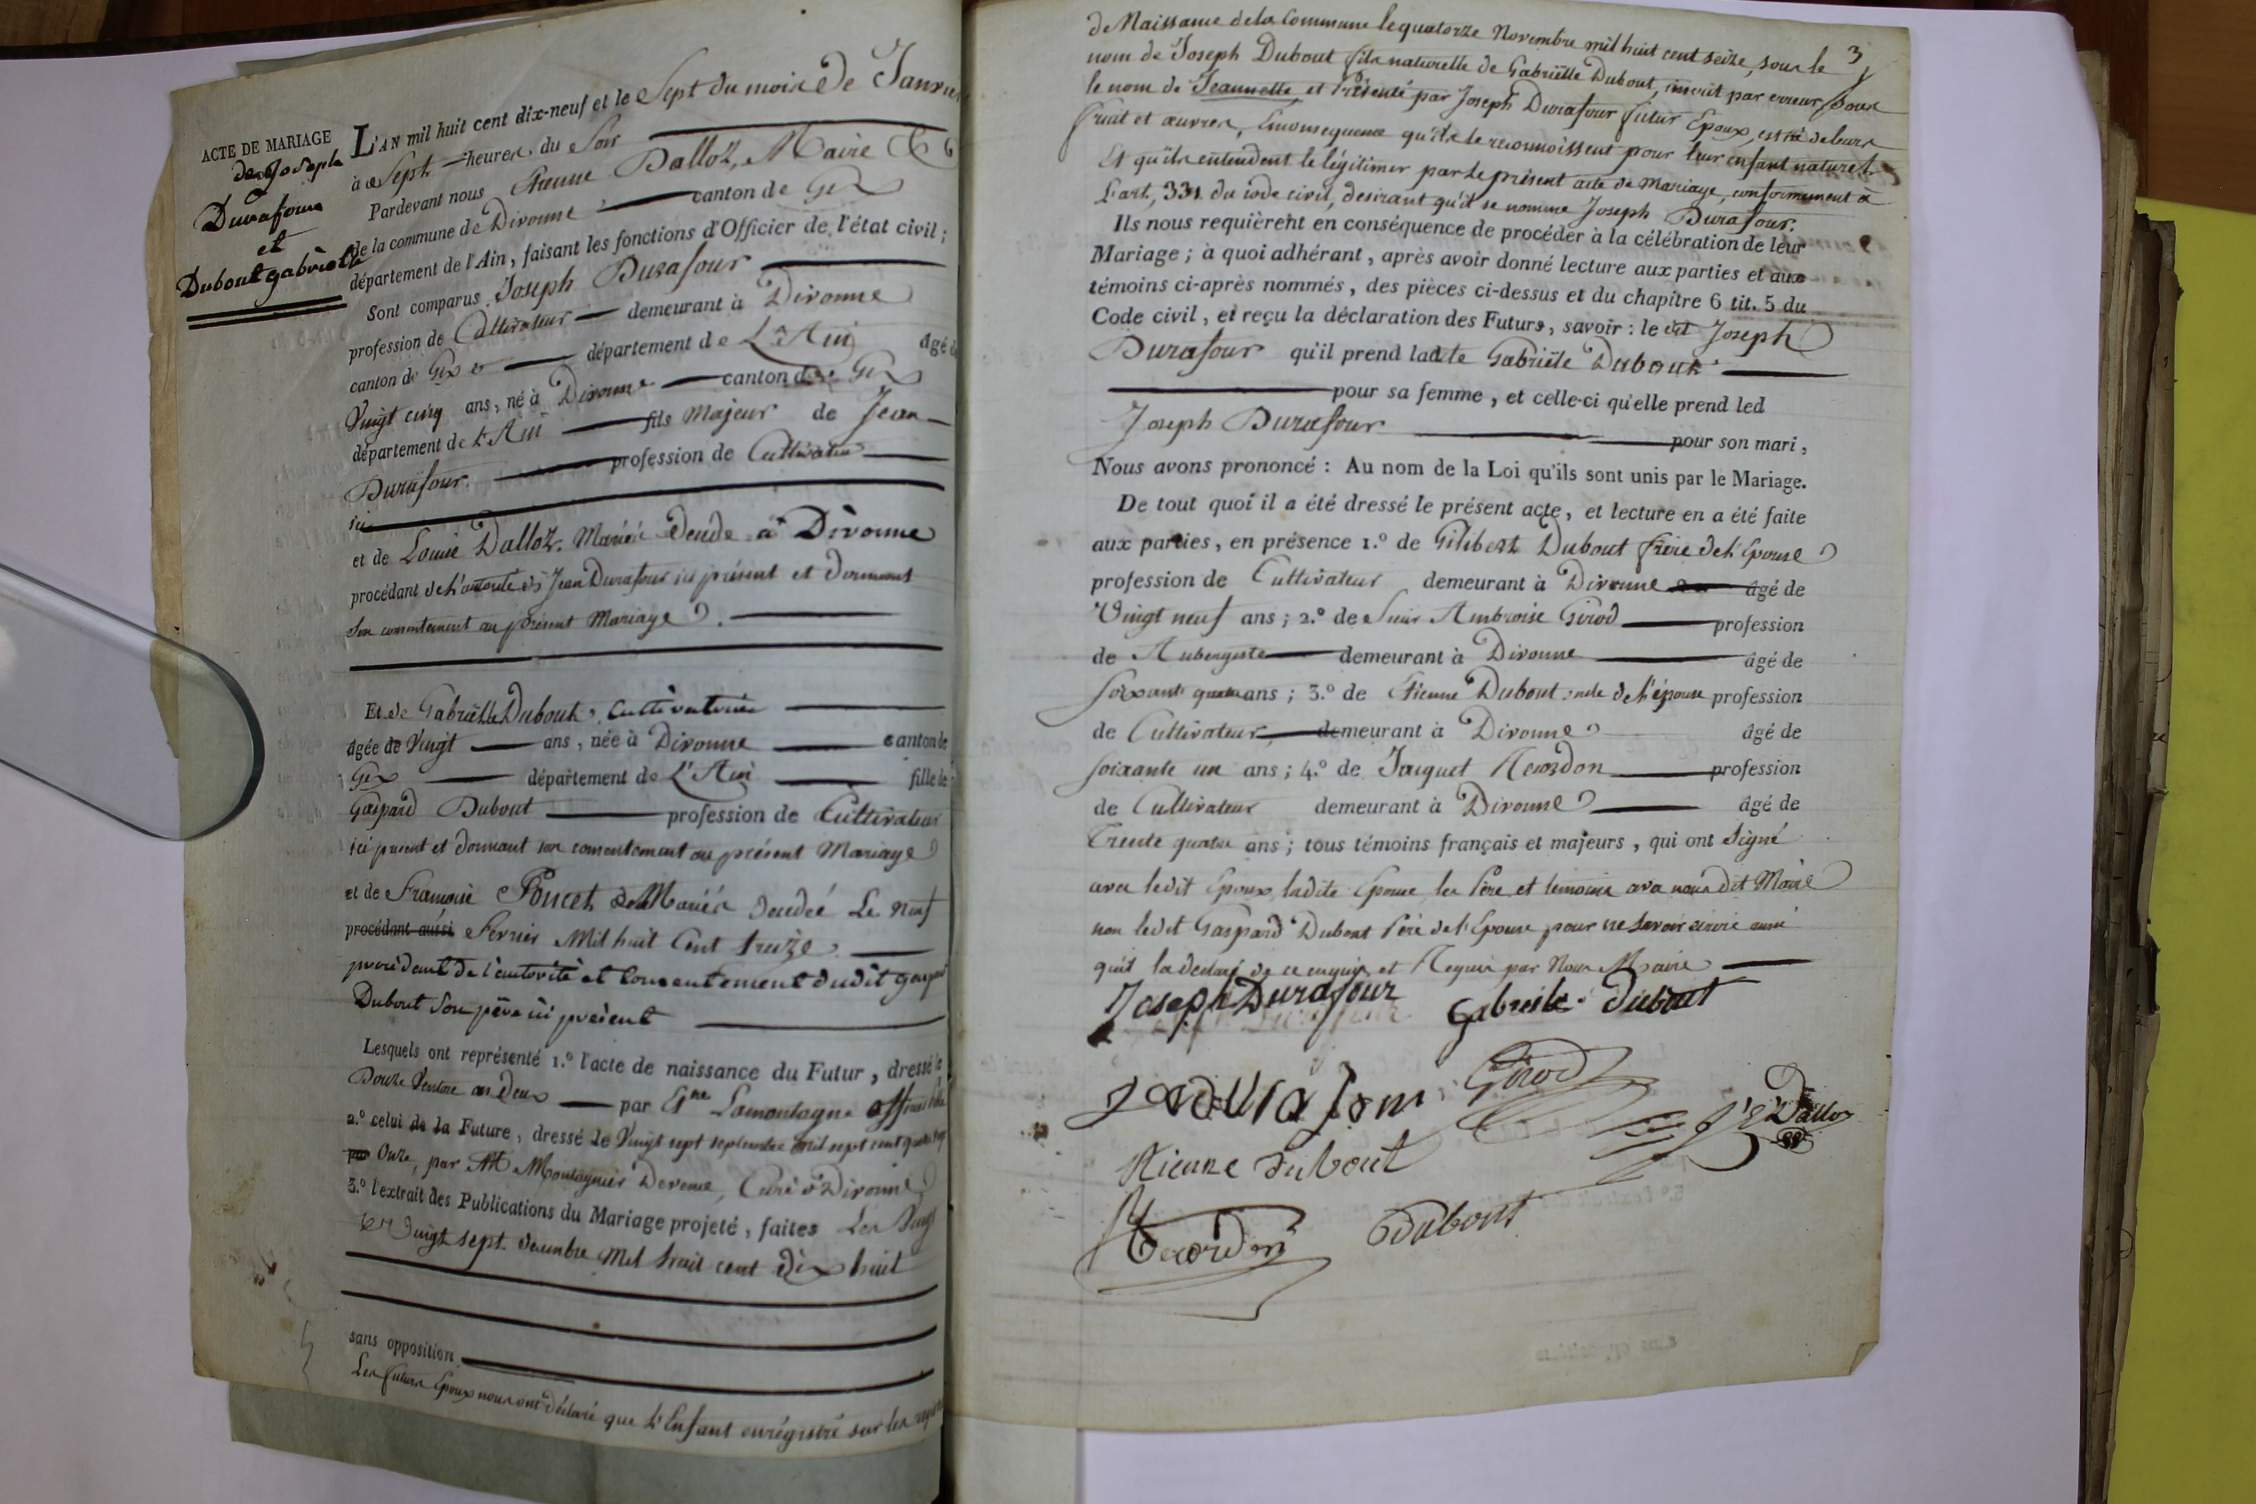 ACTE DE MARIAGE
de Joseph
Durafour
et
Dubout gabrielle
L'AN mil huit cent dix-neuf et le Sept du mois de Janvier
à Sept heures du Soir
Pardevant nous Etienne Dalloz, Maire
de la commune de Divonne canton de Gex
département de l'Ain, faisant les fonctions d'Officier de l'état civil;
Sont comparus Joseph Durafour
profession de Cultivateur demeurant à Divonne
canton de Gex département de L'Ain âgé de
Vingt cinq ans, né à Divonne canton de Gex
département de L'Ain fils Majeur de Jean
Durafour profession de Cultivateur
ici
et de Louise Dalloz, Mariés à Divonne
procédant de l'autorité de Jean Durafour ici présent et donnant
son consentement au présent Mariage
Et de Gabrielle Dubout, Cultivatrice
âgée de Vingt ans, née à Divonne canton de
Gex département de L'Ain fille de
Gaspard Dubout profession de Cultivateur
ici présent et donnant son consentement au présent Mariage
et de Françoise Poncet Mariés Le Neuf
procédant aussi Fevrier Mil huit Cent treize
procédant de l'autorité et Consentement dudit gaspard
Dubout Son père ici présent
Lesquels ont représenté 1.º l'acte de naissance du Futur, dressé le
Douze Ventose an Deux par Lamontagne
2.º celui de la Future, dressé le Vingt sept septembre mil sept cent quatre vingt
Onze, par Mr Montagnier Curé d Divonne
3.º l'extrait des Publications du Mariage projeté, faites Les Vingt
et Vingt sept decembre Mil huit cent dix huit
sans opposition
Les futurs Epoux nous ont déclaré que L'Enfant enrégistré sur les registres
3
de Naissance de la Commune le quatorze Novembre mil huit cent seize, sous le
nom de Joseph Dubout fils naturelle de Gabrielle Dubout, inscrit par erreur sous
le nom de Jeannette et Présenté par Joseph Durafour futur Epoux, est né de leurs
fruit et œuvres, Enconsequence qu'ils le reconnoissent pour leur enfant naturel
Et qu'ils entendent le légitimer par le présent acte de Mariage, conformement à
L'art, 331 du code civil, desirant qu'il se nomme Joseph Durafour.
Ils nous requièrent en conséquence de procéder à la célébration de leur
Mariage; à quoi adhérant, après avoir donné lecture aux parties et aux
témoins ci-après nommés, des pièces ci-dessus et du chapitre 6 tit. 5 du
Code civil, et reçu la déclaration des Futurs, savoir: le dit Joseph
Durafour qu'il prend ladite Gabrièle Dubout
pour sa femme, et celle-ci qu'elle prend led
Joseph Durafour pour son mari,
Nous avons prononcé: Au nom de la Loi qu'ils sont unis par le Mariage.
De tout quoi il a été dressé le présent acte, et lecture en a été faite
aux parties, en présence 1.º de Gilibert Dubout frère de l'Epouse
profession de Cultivateur demeurant à Divonne âgé de
Vingt neuf ans; 2.º de Sieur Ambroise Girod profession
de Aubergiste demeurant à Divonne âgé de
Soixante quatre ans; 3.º de Etienne Dubout oncle de l'épouse profession
de Cultivateur demeurant à Divonne âgé de
soixante un ans; 4.º de Jaquet profession
de Cultivateur demeurant à Divonne âgé de
Trente quatre ans; tous témoins français et majeurs, qui ont Signé
avec ledit Epoux, ladite Epouse les Père et temoins avec nous dit Maire
non ledit Gaspard Dubout Père de l'Epouse pour ne Savoir écrire ainsi
qu'il la déclaré de ce enquis et Requis par Nous Maire
Joseph Durafour Gabrielle dubout
Jan durafour Girod
Dalloz
Etienne dubout
Dubout